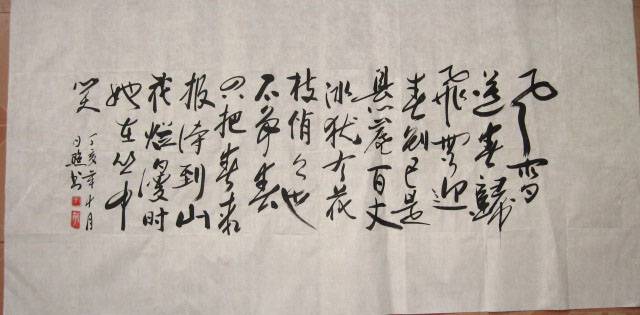 风雨
送春歸
飛雪迎
春到已是
悬崖百丈
冰犹有花
枝俏々也
不争春
只把春来
报待到山
花烂漫时
她在丛中
笑
丁亥年十月
书